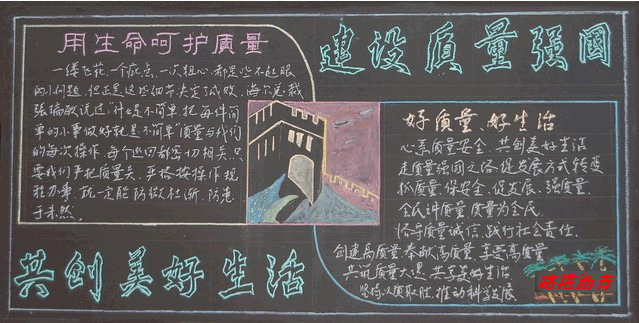 用生命呵护质量
一缕飞花,一个疵点,一次粗心,都是些不起眼
的小问题,但正是这些细节决定了成败,海尔总裁
张瑞敏说过"什么是不简单,把每件简
单的小事做好就是不简单"质量与我们
的每次操作,每个巡回都密切相关,只
要我们严把质量关,严格按操作规
程办事,就一定能防微杜渐,防患
于未然.
建设质量强国
好质量、好生活
心系质量安全,共创美好生活
走质量强国之路,促发展方式转变
抓质量,保安全,促发展,强质量
全民讲质量,质量为全民.
恪守质量诚信,践行社会责任.
创建高质量,奉献高质量,享受高质量
共筑质量大堤,共享美好生活
坚持以质取胜,推动科学发展
共创美好生活